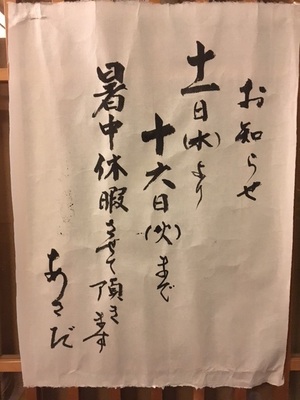 お知らせ
十一日(水)より
十六日(火)まで
暑中休暇させて頂きます
あさだ